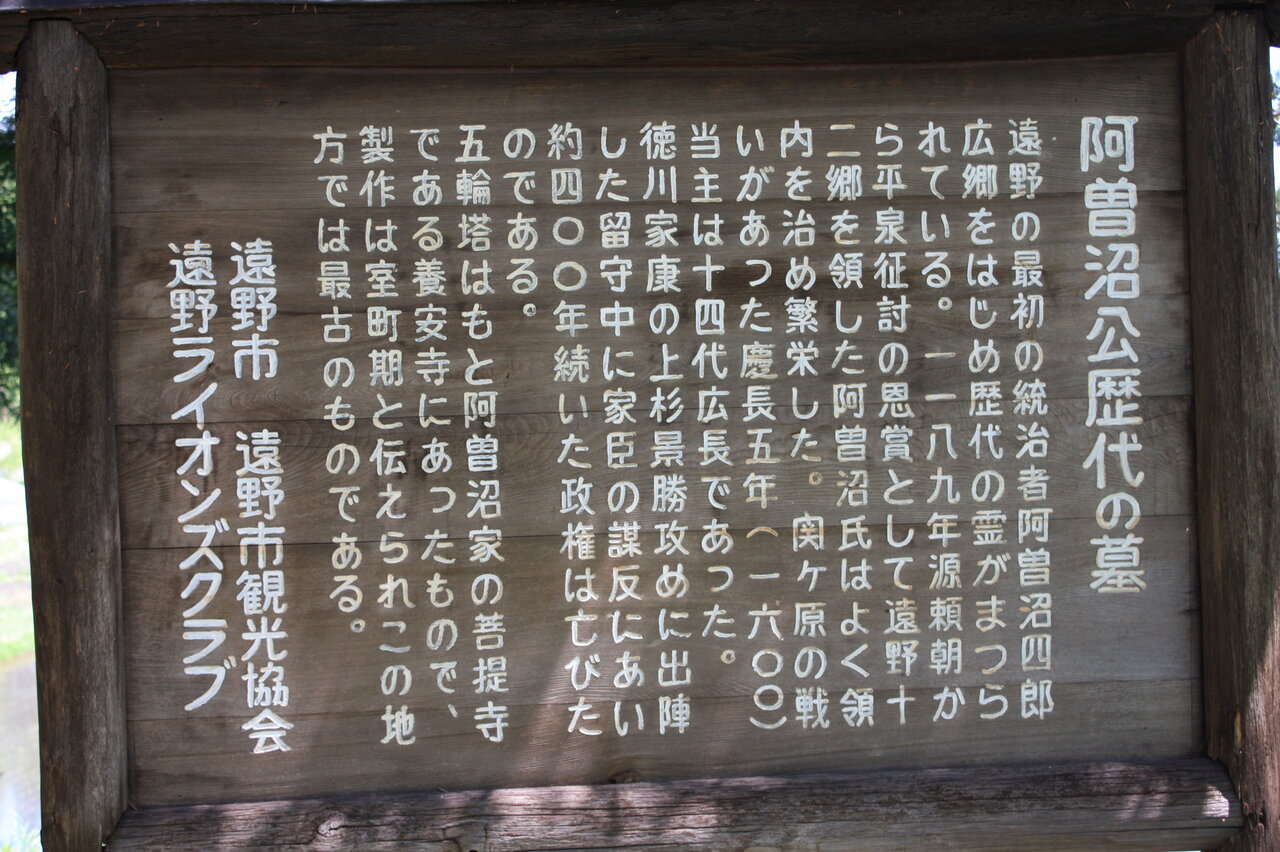 阿曽沼公歴代の墓
遠野の最初の統治者阿曽沼四郎
広郷をはじめ歴代の霊がまつら
れている。一一八九年源頼朝か
ら平泉征討の恩賞として遠野十
二郷を領した阿曽沼氏はよく領
内を治め繁栄した。関ヶ原の戦
いがあった慶長五年(一六〇〇)
当主は十四代広長であった。
徳川家康の上杉景勝攻めに出陣
した留守中に家臣の謀反にあい
約四〇〇年続いた政権は亡びた
のである。
五輪塔はもと阿曽沼家の菩提寺
である養安寺にあったもので、
製作は室町期と伝えられこの地
方では最古のものである。
遠野市 遠野市観光協会
遠野ライオンズクラブ